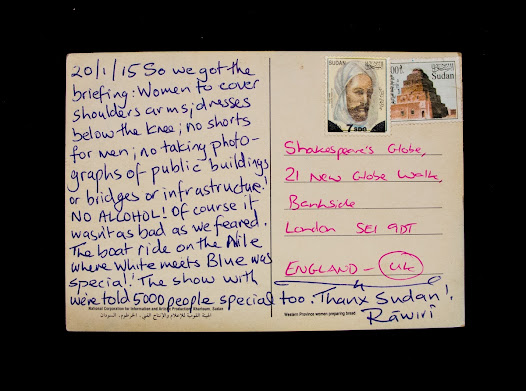 20/1/15 So we got the
briefing: Women to cover
shoulders arms; dresses
below the knee; no shorts
for men; no taking photo-
graphs of public buildings
or bridges or infrastructure!
NO ALCOHOL! Of course it
wasn't as bad as we feared.
The boat ride on the Nile
where White meets Blue was
special! The show with
we're told 5000 people special too. Thanx Sudan!
Rāwiri
National Corporation for Information and Artistic Production, Khartoum, Sudan
SUDAN
7 SDG
Sudan
Shakespeare's Globe,
21 New Globe Walk,
Bankside
London SE1 9DT
ENGLAND - UK
Western Province women preparing bread